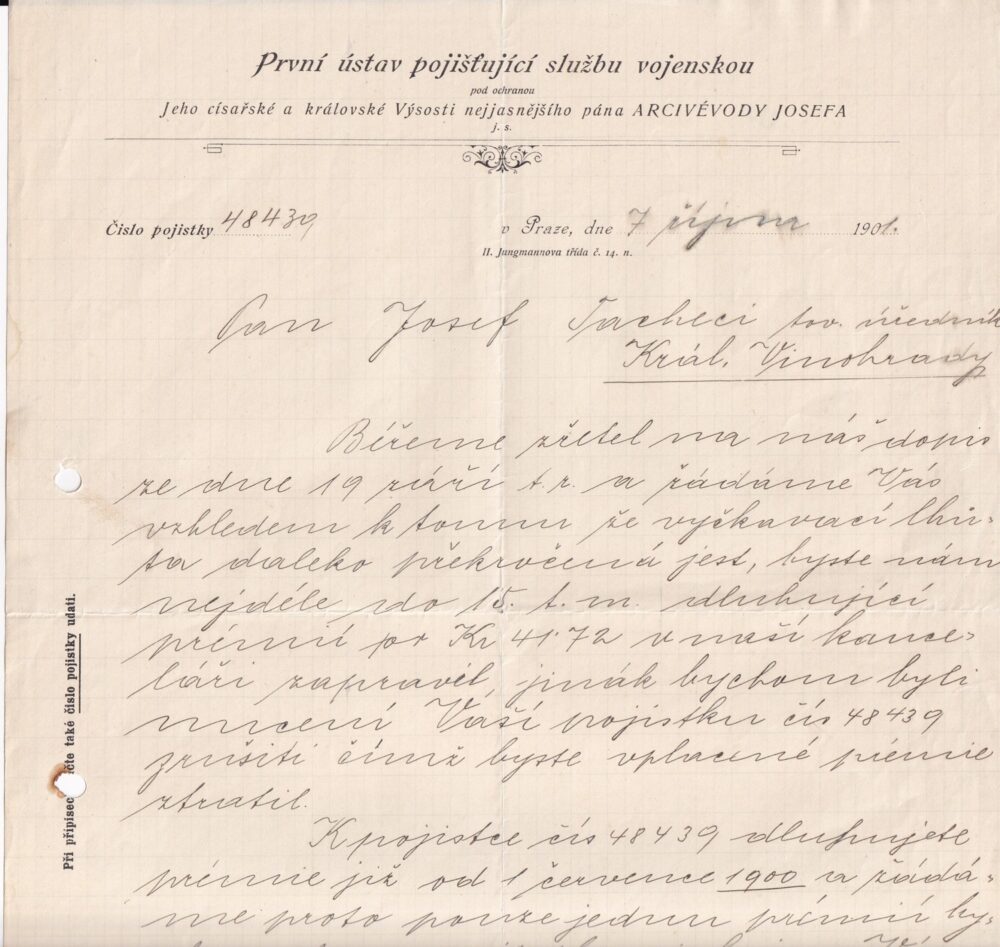 První ústav pojišťující službu vojenskou
pod ochranou
Jeho císařské a královské Výsosti nejjasnějšího pána ARCIVÉVODY JOSEFA
j. s.
Číslo pojistky 48439
v Praze, dne 7 října 1901.
II. Jungmannova třída č. 14. n.
Pan Josef Tacheci tov. úředník
Král. Vinohrady
Béřeme zřetel na náš dopis
ze dne 19 září t. r. a žádáme Vás
vzhledem k tomu že vyčkavací lhů-
ta daleko překročená jest, byste nám
nejdéle do 15. t. m. dluhující
prémii pr Kr 41·72 v naší kance-
láři zapravil, jinák bychom byli
nuceni Vaší pojistku čís 48439
zrušiti čímž byste vplacené prémie
ztratil.
K pojistce čís 48439 dluhujete
prémie již od 1 července 1900 a žádá-
me proto pouze jednu prémii by-
Při přípisec také číslo pojistky udati.